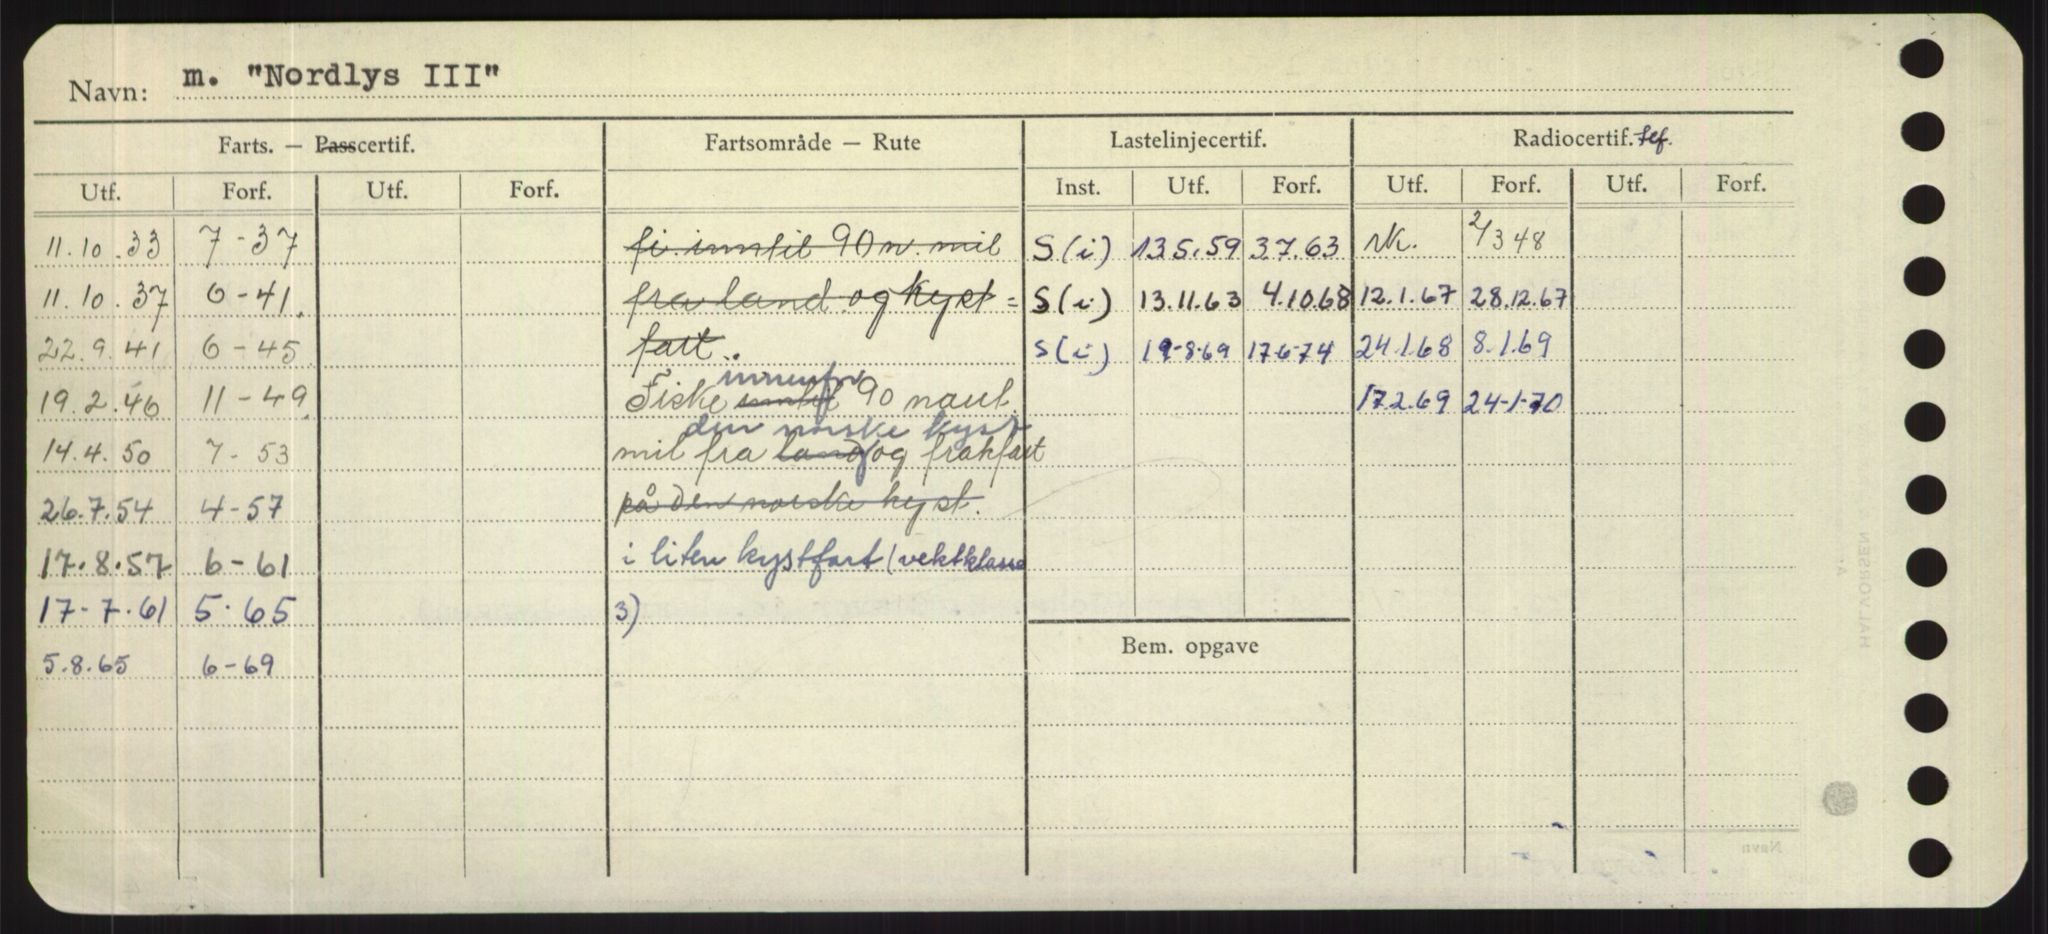 Navn: m. "Nordlys III"
Farts. — Passcertif. Fartsområde — Rute Lastelinjecertif. Radiocertif. tlf.
Utf. Forf. Utf. Forf. Inst. Utf. Forf. Utf. Forf. Utf. Forf.
11.10.33 7-37 fi. inntil 90 n. mil S(i) 13.5.59 3.7.63 Nk. 2/3 48
11.10.37 6-41. fra land og kyst= S(i) 13.11.63 4.10.68 12.1.67 28.12.67
22.9.41 6-45 fart. S(i) 19-8-69 17-6-74 24.1.68 8.1.69
innenfor
19.2.46 11-49. Fiske inntil 90 naut. 17.2.69 24-1-70
den norske kyst
14.4.50 7-53 mil fra land og frakfart
26.7.54 4-57 på den norske kyst.
17.8.57 6-61 i liten kystfart (vektklasse
17-7.61 5.65 3)
Bem. opgave
5.8.65 6-69
Navn